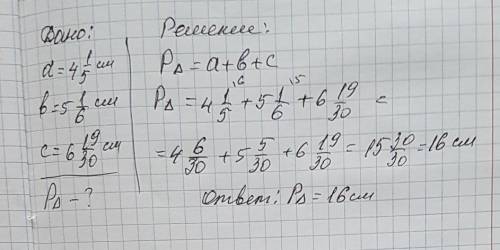 Дано:
a = 4 1/5 см
b = 5 1/6 см
c = 6 19/30 см
P△ - ?
Решение:
P△ = a + b + c
P△ = 4 1/5 ⁶ + 5 1/6 ⁵ + 6 19/30 =
= 4 6/30 + 5 5/30 + 6 19/30 = 15 30/30 = 16 см
Ответ: P△ = 16 см